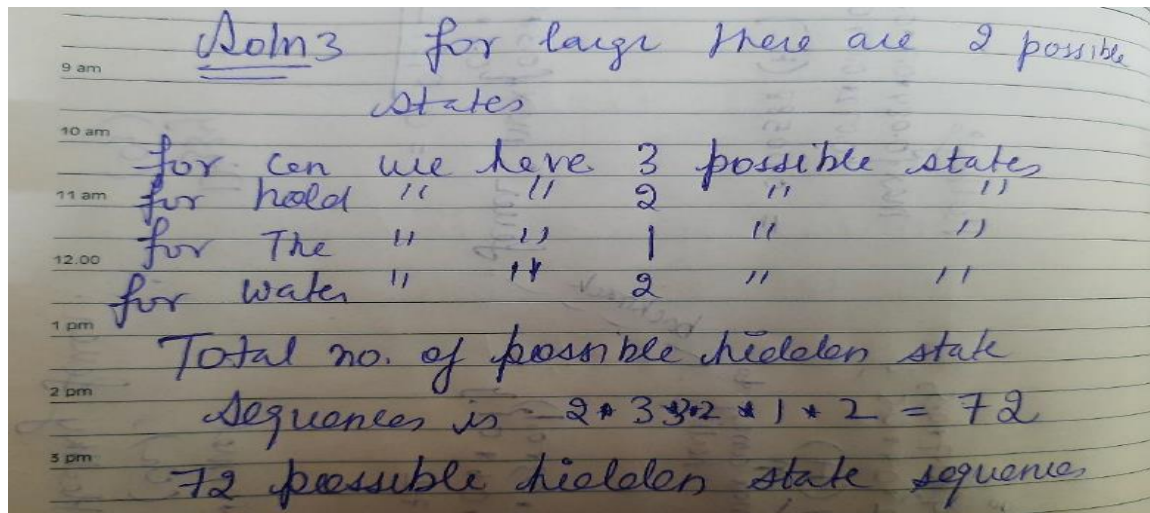 Soln3 for large there are 2 possible
9 am
states
10 am
for can we have 3 possible states
11 am
for hold " " 2 " "
for The " " 1 " "
12.00
for water " " 2 " "
1 pm
Total no. of possible hidden state
2 pm
sequences is 2 * 3 * 3 * 2 * 1 * 2 = 72
3 pm
72 possible hidden state sequences